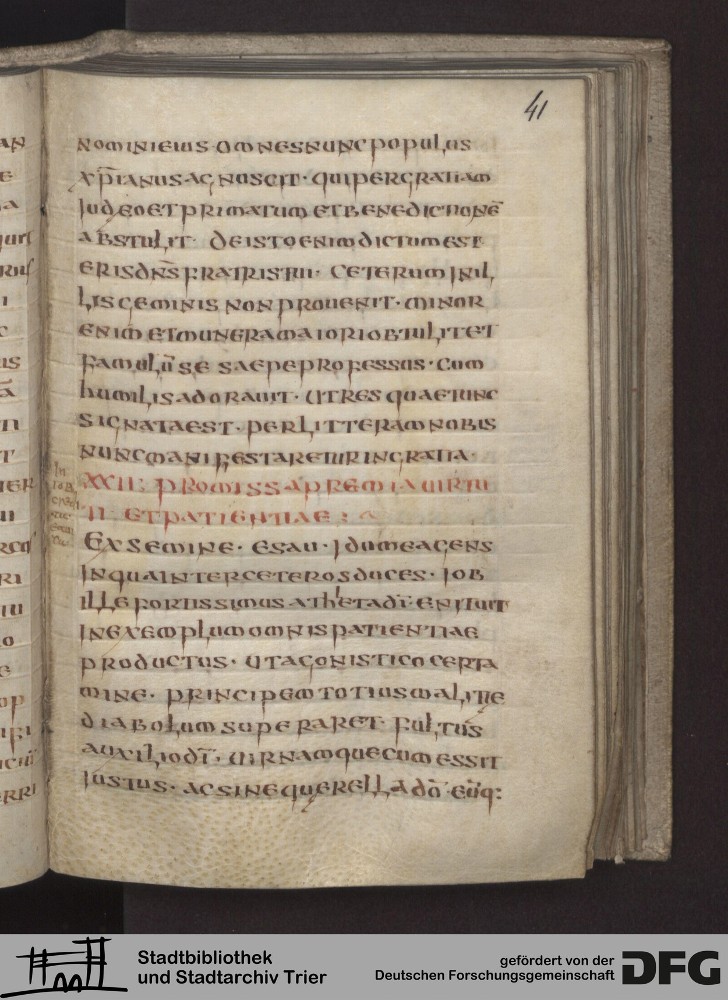 41
nominieius omnesnuncpopulus
xp̄ianusagnoscit· quipergratiam
iudeoetprimatum etbenedictionē
abstulit· deistoenimdictumest
erisdn̄sfratristui· ceterum inil
lisgeminis nonprouenit· minor
enim etmuneramaioriobtulitet
famulūse saepeprofessus· cum
humilisadorauit· utres quaetunc
signataest· perlitteramnobis
nuncmanifestareturingratia·
XXII: promissapremiauirtu
ti· etpatientiae:
Exsemine· esau· idumeagens
inquainterceterosduces· iob
illefortissimus athletadī· enituit
inexemplumomnispatientiae
productus· utagonisticocerta
mine· principemtotiusmalitie
diabolumsuperaret· fultus
auxiliodī· uirnamquecumessit
iustus· acsinequerellado· eiq:
Stadtbibliothek
und Stadtarchiv Trier
gefördert von der
Deutschen Forschungsgemeinschaft
DFG